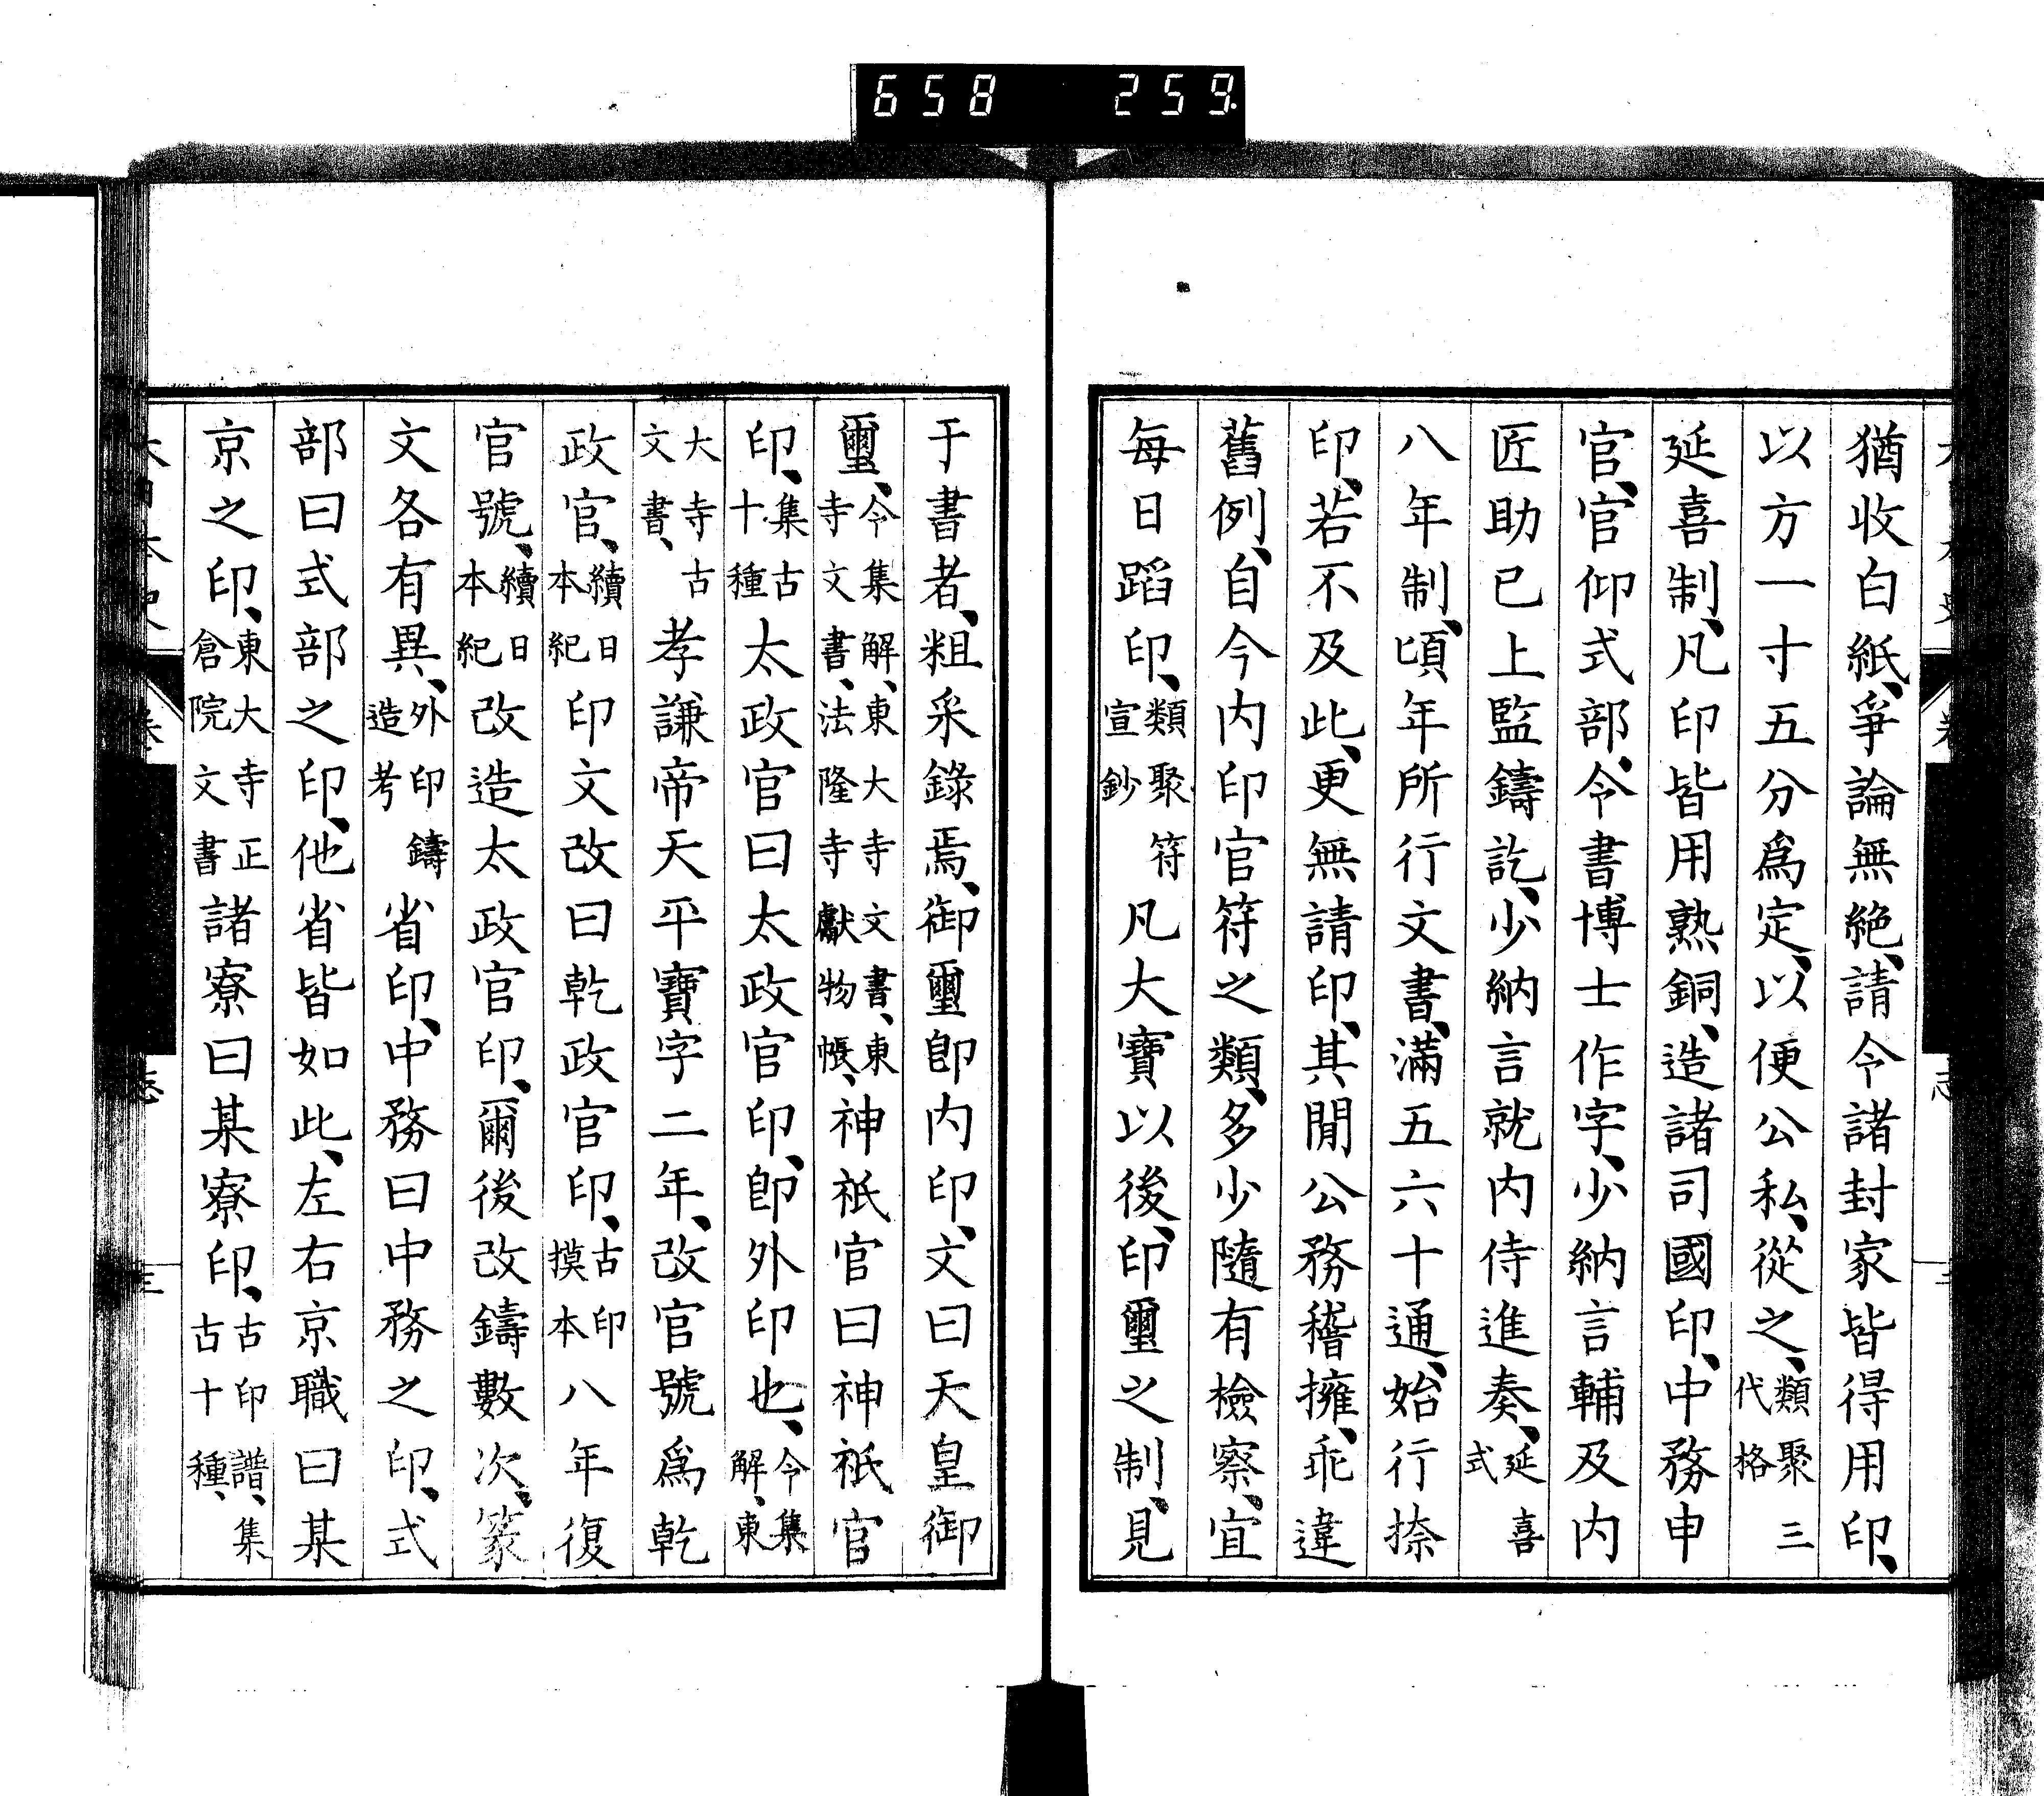 658 259
猶收白紙、爭論無絶、請令諸封家皆得用印、
以方一寸五分爲定、以便公私、從之、類聚三代格
延喜制、凡印皆用熟銅、造諸司國印、中務申
官、官仰式部、令書博士作字、少納言輔及内
匠助已上監鑄訖、少納言就内侍進奏、延喜式
八年制、頃年所行文書、滿五六十通、始行捺
印、若不及此、更無請印、其間公務稽擁、乖違
舊例、自今内印官符之類、多少隨有檢察、宜
每日蹈印、類聚符宣鈔凡大寶以後、印璽之制、見
于書者、粗采錄焉、御璽卽内印、文曰天皇御
璽、令集解、東大寺文書、東寺文書、法隆寺獻物帳、神祇官曰神祇官
印、集古十種太政官曰太政官印、卽外印也、令集解、東
大寺古文書、孝謙帝天平寶字二年、改官號爲乾
政官、續日本紀印文改曰乾政官印、古印摸本八年復
官號、續日本紀改造太政官印、爾後改鑄數次、篆
文各有異、外印鑄造考省印、中務曰中務之印、式
部曰式部之印、他省皆如此、左右京職曰某
京之印、東大寺正倉院文書諸寮曰某寮印、古印譜、集古十種、